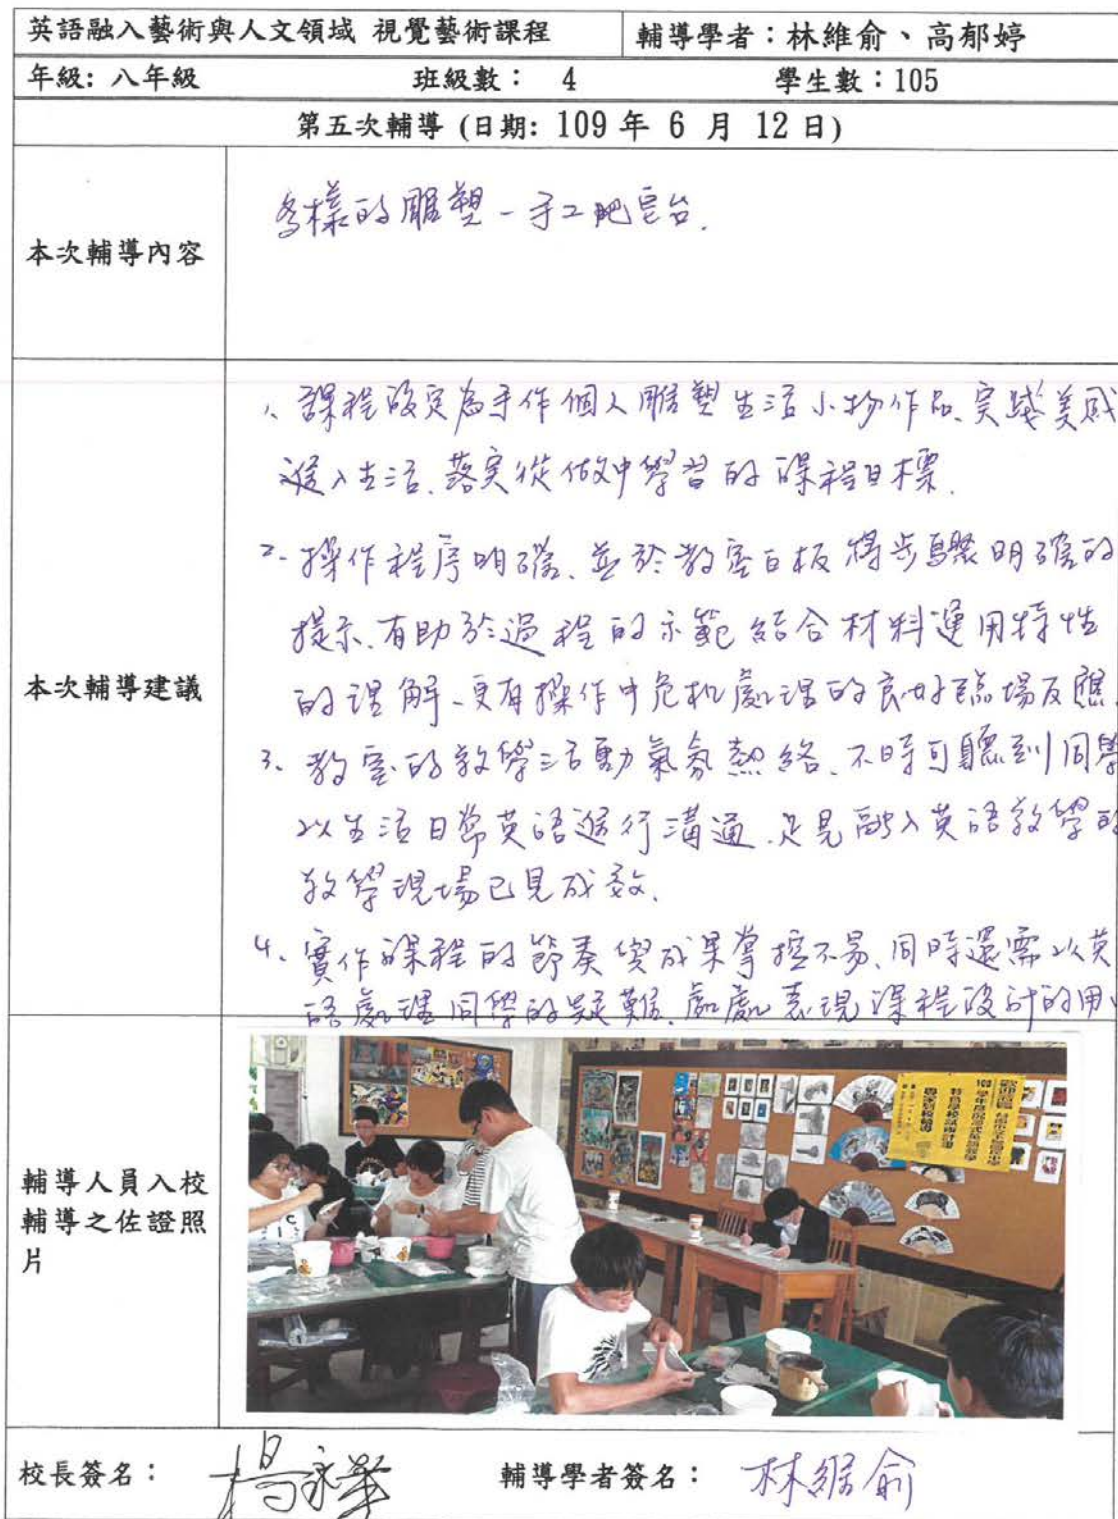 英語融入藝術與人文領域 視覺藝術課程 輔導學者：林維俞、高郁婷
年級: 八年級 班級數： 4 學生數：105
第五次輔導 (日期: 109 年 6 月 12 日)
本次輔導內容
多樣的雕塑-手工肥皂台.
本次輔導建議
1、課程設定為手作個人雕塑生活小物作品、実踐美感
進入生活.落実從做中學習的課程目標.
2-操作程序明確、並於教室白板將步驟明確的
提示、有助於過程的示範結合材料運用特性
的理解、更有操作中危机處理的良好臨場反應.
3、教室的教學活動氣氛熱絡、不時可聽到同學
以生活日常英語進行溝通.足見融入英語教學的
教學現場已見成效.
4、實作課程的節奏與成果掌控不易、同時還需以英
語處理同學的疑難.處處表現課程設計的用
歡迎蒞臨
輔導人員入校
輔導之佐證照
片
校長簽名： 輔導學者簽名： 林維俞